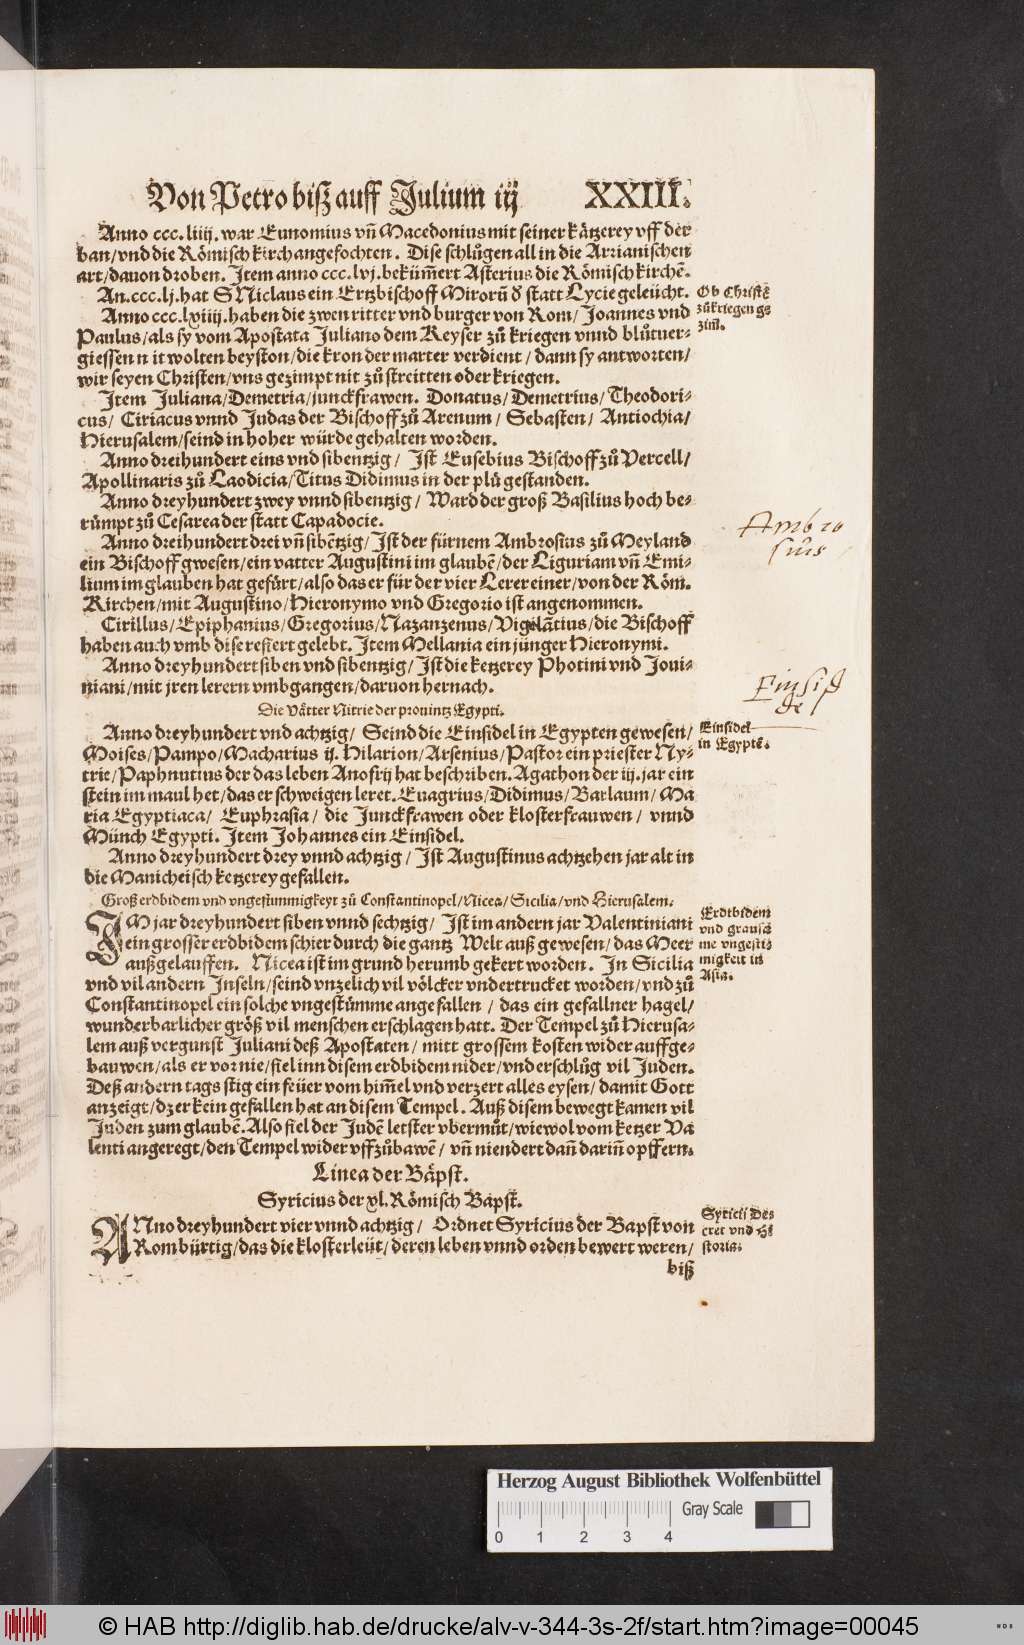 Von Petro biß auff Julium iij XXIII.
Anno ccc.liiij. war Eunomius vñ Macedonius mit seiner kätzerey vff der
ban/vnd die Römisch kirch angefochten. Dise schlůgen all in die Arrianischen
art/dauon droben. Item anno ccc.lvj. beküm̃ert Asterius die Römisch kirchẽ.
An.ccc.lj. hat S Niclaus ein Ertzbischoff Mirorũ d̕ statt Lycie geleücht.
Anno ccc.lxiiij. haben die zwen ritter vnd burger von Rom/Joannes vnd
Paulus/als sy vom Apostata Juliano dem Keyser zů kriegen vnnd blůtuer-
giessen nit wolten beyston/die kron der marter verdient/dann sy antworten/
wir seyen Christen/vns gezimpt nit zů streitten oder kriegen.
Ob Christẽ
zů kriegen ge
zim̃.
Item Juliana/Demetria/junckfrawen. Donatus/Demetrius/Theodori-
cus/Ciriacus vnnd Judas der Bischoff zů Arenum/Sebasten/Antiochia/
Hierusalem/seind in hoher würde gehalten worden.
Anno dreihundert eins vnd sibentzig/Ist Eusebius Bischoff zů Vercell/
Apollinaris zů Laodicia/Titus Didimus in der plů gestanden.
Anno dreyhundert zwey vnnd sibentzig/Ward der groß Basilius hoch be-
rümpt zů Cesarea der statt Capadocie.
Anno dreihundert drei vñ sibẽtzig/Ist der fürnem Ambrosius zů Meyland
ein Bischoff gwesen/ein vatter Augustini im glaubẽ/der Liguriam vñ Emi-
lium im glauben hat gefürt/also das er für der vier Lerer einer/von der Röm.
Kirchen/mit Augustino/Hieronymo vnd Gregorio ist angenommen.
Ambro
sius
Cirillus/Epiphanius/Gregorius/Nazanzenus/Vigilãtius/die Bischoff
haben auch vmb dise refiert gelebt. Item Mellania ein jünger Hieronymi.
Anno dreyhundert siben vnd sibentzig/Ist die ketzerey Photini vnd Joui-
niani/mit jren lerern vmbgangen/daruon hernach.
Einsid
de
Die Vätter Nitrie der prouintz Egypti.
Anno dreyhundert vnd achtzig/Seind die Einsidel in Egypten gewesen/
Moises/Pampo/Macharius ij. Hilarion/Arsenius/Pastor ein priester Ny-
trie/Paphnutius der das leben Anofrij hat beschriben. Agathon der iij. jar ein
stein im maul het/das er schweigen leret. Euagrius/Didimus/Barlaum/Ma
ria Egyptiaca/Euphrasia/die Junckfrawen oder klosterfrauwen/vnnd
Münch Egypti. Item Johannes ein Einsidel.
Einsidel
in Egyptẽ.
Anno dreyhundert drey vnnd achtzig/Ist Augustinus achtzehen jar alt in
die Manicheisch ketzerey gefallen.
Groß erdbidem vnd vngestümmigkeyt zů Constantinopel/Nicea/Sicilia/vnd Hierusalem.
IM jar dreyhundert siben vnnd sechtzig/Ist im andern jar Valentiniani
ein grosser erdbidem schier durch die gantz Welt auß gewesen/das Meer
außgelauffen. Nicea ist im grund herumb gekert worden. In Sicilia
vnd vil andern Inseln/seind vnzelich vil völcker vndertrucket worden/vnd zů
Constantinopel ein solche vngestümme angefallen/das ein gefallner hagel/
wunderbarlicher größ vil menschen erschlagen hatt. Der Tempel zů Hierusa-
lem auß vergunst Juliani deß Apostaten/mitt grossem kosten wider auffge-
bauwen/als er vor nie/fiel inn disem erdbidem nider/vnd erschlůg vil Juden.
Deß andern tags stig ein feüer vom him̃el vnd verzert alles eysen/damit Gott
anzeigt/dz er kein gefallen hat an disem Tempel. Auß disem bewegt kamen vil
Juden zum glaubẽ. Also fiel der Judẽ letster vbermůt/wiewol vom ketzer Va
lenti angeregt/den Tempel wider vffzůbawẽ/vñ niendert dañ dariñ opffern.
Erdtbidem
vnd grausa
me vngestü
migkeit in
Asia.
Linea der Bäpst.
Syricius der xl. Römisch Bapst.
ANno dreyhundert vier vnnd achtzig/Ordnet Syricius der Bapst von
Rom bürtig/das die klosterleüt/deren leben vnnd orden bewert weren/
biß
Syricij De-
cret vnd Hi
storia.
Herzog August Bibliothek Wolfenbüttel
Gray Scale
0 1 2 3 4
© HAB http://diglib.hab.de/drucke/alv-v-344-3s-2f/start.htm?image=00045